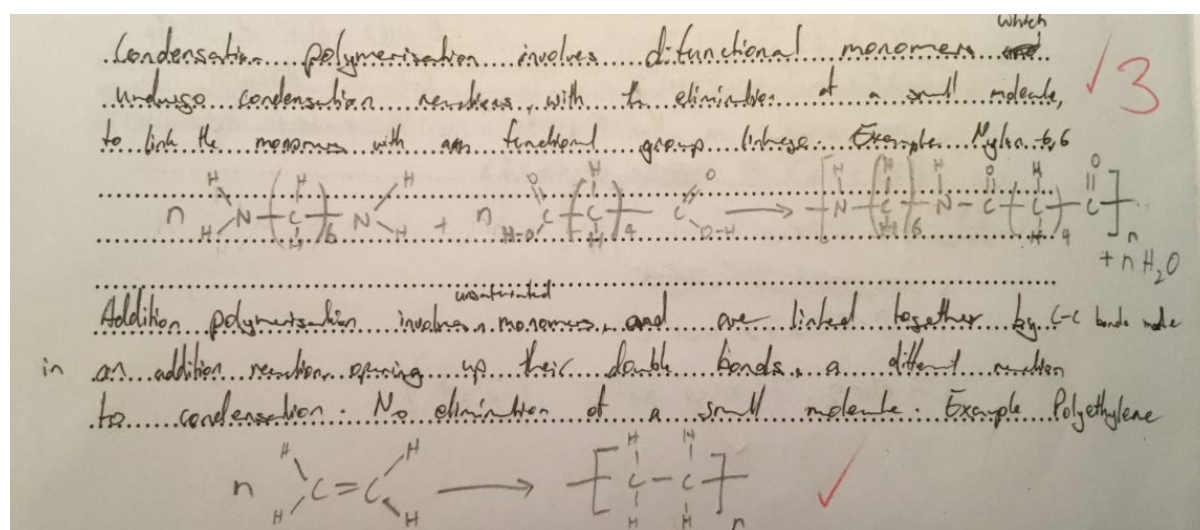 which
Condensation polymerisation involves difunctional monomers
undergo condensation reactions, with the elimination of a small molecule, ✓3
to link the monomers with a functional group linkage. Example Nylon-6,6
n H H N ( H C H )6 N H H + n O C H-O ( H C H )4 C O O-H → [ H N ( H C H )6 H N O C ( H C H )4 O C ]n
+ n H2O
unsaturated
Addition polymerisation involves monomers, and are linked together by C-C bonds made
in an addition reaction, opening up their double bonds, a different reaction
to condensation. No elimination of a small molecule. Example Polyethylene
n H H C=C H H → [ H C H - H C H ]n ✓